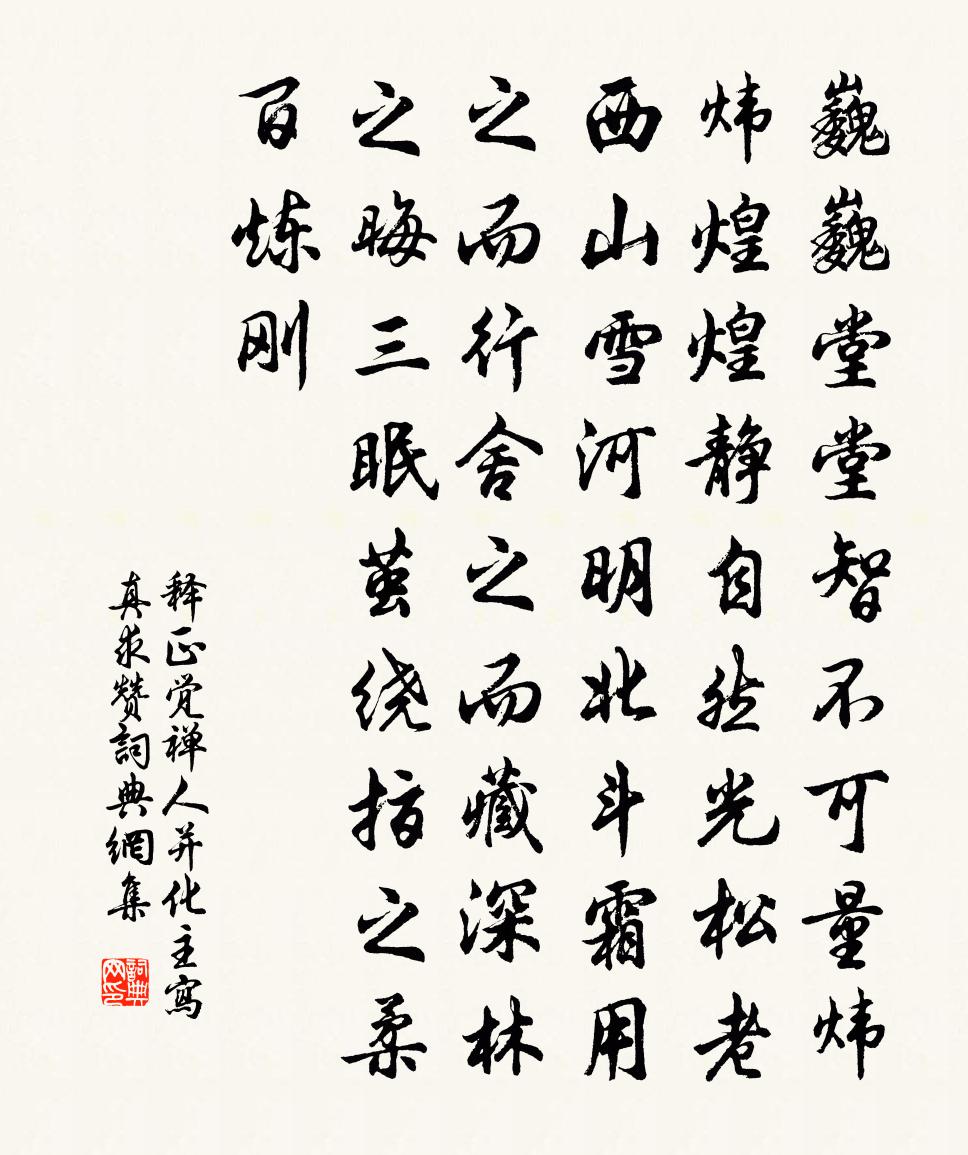 巍巍堂堂智不可量炜
炜煌煌静自然光松老
西山雪河明北斗霜用
之而行舍之而藏深林
之晦三眠茧绕指之柔
百炼刚
释正觉禅人并化主寫
真求赞詞典網集
詞典
网印